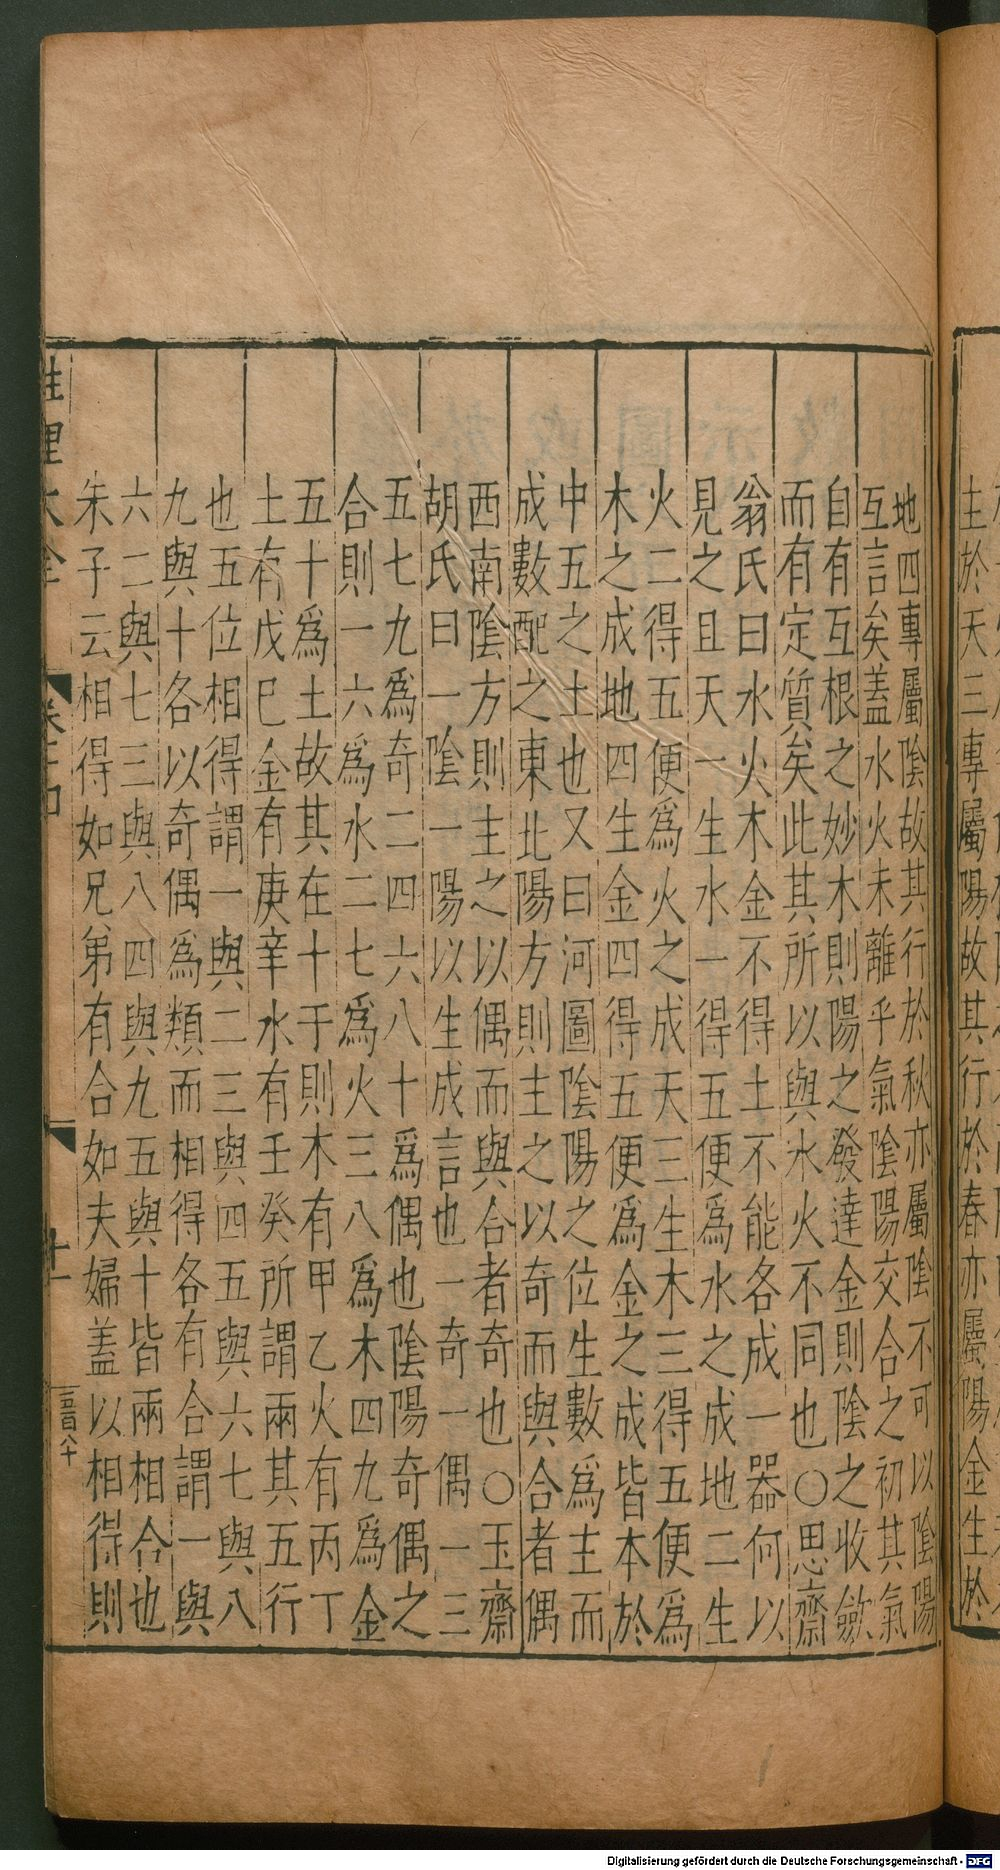 主於天三專屬陽故其行於春亦屬陽金生於
地四專屬陰故其行於秋亦屬陰不可以陰陽
互言矣蓋水火未離乎氣陰陽交合之初其氣
自有互根之妙木則陽之發達金則陰之收斂
而有定質矣此其所以與水火不同也○思齋
翁氏曰水火木金不得土不能各成一器何以
見之且天一生水一得五便爲水之成地二生
火二得五便爲火之成天三生木三得五便爲
木之成地四生金四得五便爲金之成皆本於
中五之土也又曰河圖陰陽之位生數爲主而
成數配之東北陽方則主之以奇而與合者偶
西南陰方則主之以偶而與合者奇也○玉齋
胡氏曰一陰一陽以生成言也一奇一偶一三
五七九爲奇二四六八十爲偶也陰陽奇偶之
合則一六爲水二七爲火三八爲木四九爲金
五十爲土故其在十干則木有甲乙火有丙丁
土有戊巳金有庚辛水有壬癸所謂兩其五行
也五位相得謂一與二三與四五與六七與八
九與十各以奇偶爲類而相得各有合謂一與
六二與七三與八四與九五與十皆兩相合也
朱子云相得如兄弟有合如夫婦蓋以相得則
性理大全
卷十四
十一
三百八十
Digitalisierung gefördert durch die Deutsche Forschungsgemeinschaft - DFG